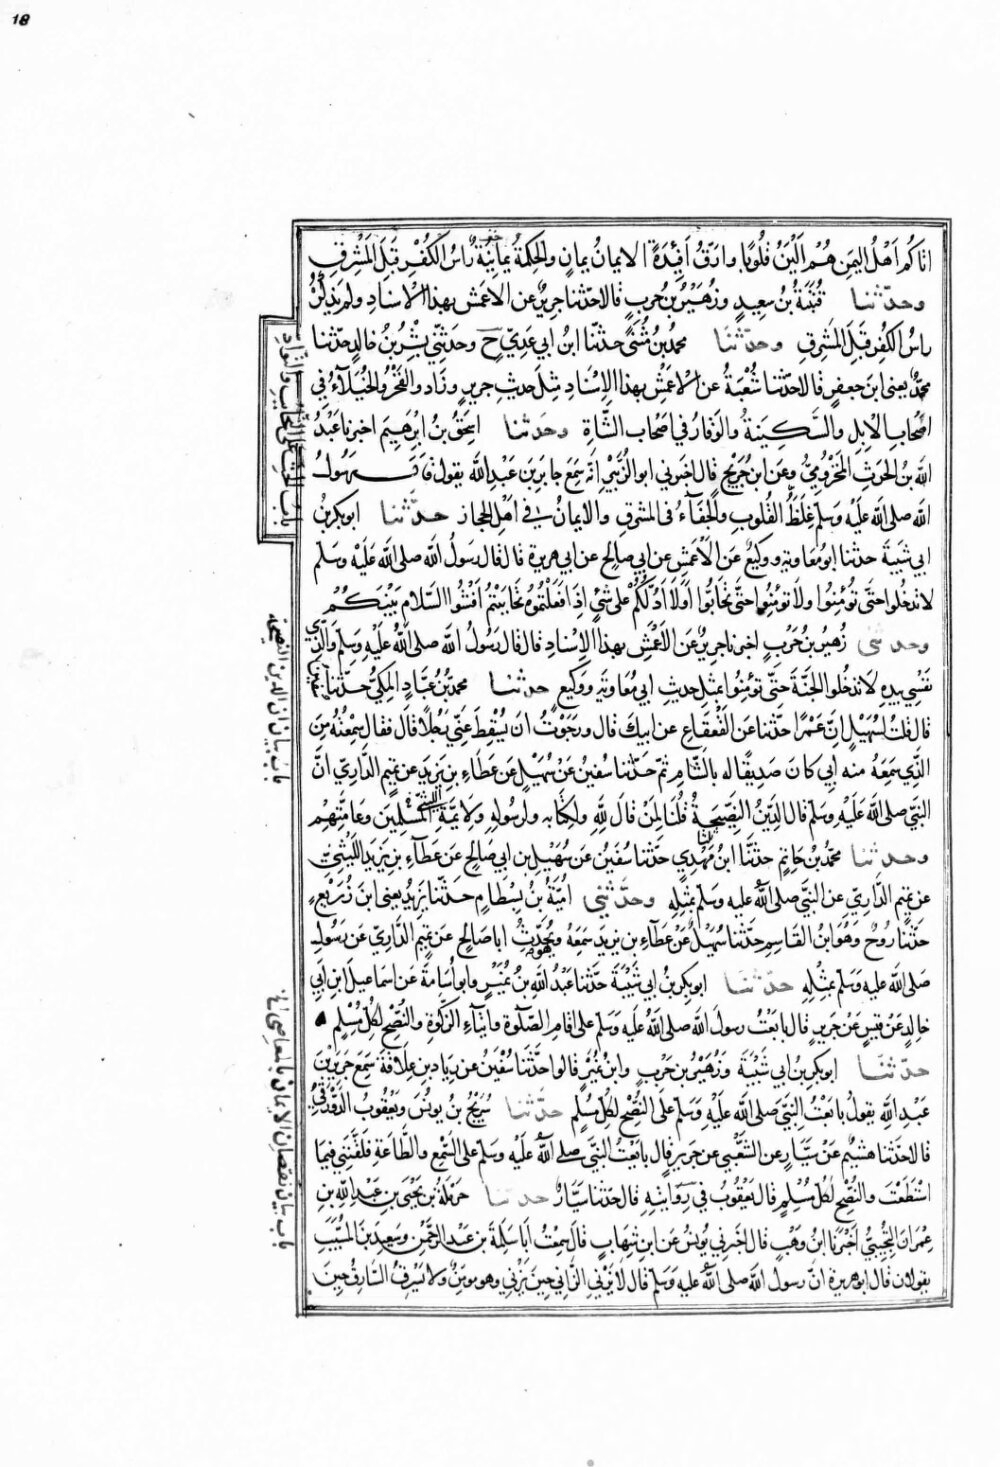 18
اتاكم اهل اليمن هم الين قلوبا وارق افئدة الايمان يمان والحكمة يمانية راس الكفر قبل المشرق
وحدثنا قتيبة بن سعيد وزهير بن حرب قالا حدثنا جرير عن الاعمش بهذا الاسناد ولم يذكر
راس الكفر قبل المشرق وحدثنا محمد بن مثنى حدثنا ابن ابي عدي ح وحدثني بشر بن خالد حدثنا
محمد يعني ابن جعفر قالا حدثنا شعبة عن الاعمش بهذا الاسناد مثل حديث جرير وزاد والفخر والخيلاء في
اصحاب الابل والسكينة والوقار في اصحاب الشاة وحدثنا اسحق بن ابرهيم اخبرنا عبد
الله بن الحرث المخزومي عن ابن جريج قال اخبرني ابو الزبير انه سمع جابر بن عبد الله يقول قال رسول
الله صلى الله عليه وسلم غلظ القلوب والجفاء في المشرق والايمان في اهل الحجاز حدثنا ابو بكر بن
ابي شيبة حدثنا ابو معاوية ووكيع عن الاعمش عن ابي صالح عن ابي هريرة قال قال رسول الله صلى الله عليه وسلم
لا تدخلوا حتى تؤمنوا ولا تؤمنوا حتى تحابوا اولا ادلكم على شئ اذا فعلتموه تحاببتم افشوا السلام بينكم
وحدثني زهير بن حرب اخبرنا جرير عن الاعمش بهذا الاسناد قال قال رسول الله صلى الله عليه وسلم والذي
نفسي بيده لا تدخلوا الجنة حتى تؤمنوا بمثل حديث ابي معاوية ووكيع حدثنا محمد بن عباد المكي حدثنا سفين
قال قلت لسهيل ان عمرا حدثنا عن القعقاع عن ابيك قال ورجوت ان يسقط عني رجلا قال فقال سمعته من
الذي سمعه منه ابي كان صديقا له بالشام ثم حدثنا سفين عن سهيل عن عطاء بن يزيد عن تميم الداري ان
النبي صلى الله عليه وسلم قال الدين النصيحة قلنا لمن قال لله ولكتابه ولرسوله ولائمة المسلمين وعامتهم
وحدثنا محمد بن حاتم حدثنا ابن مهدي حدثنا سفين عن سهيل بن ابي صالح عن عطاء بن يزيد الليثي
عن تميم الداري عن النبي صلى الله عليه وسلم بمثله وحدثني امية بن بسطام حدثنا يزيد يعني ابن زريع
حدثنا روح وهو ابن القاسم حدثنا سهيل عن عطاء بن يزيد سمعه وهو يحدث ابا صالح عن تميم الداري عن رسول
صلى الله عليه وسلم بمثله حدثنا ابو بكر بن ابي شيبة حدثنا عبد الله بن نمير وابو اسامة عن اسماعيل ابن ابي
خالد عن قيس عن جرير قال بايعت رسول الله صلى الله عليه وسلم على اقام الصلوة وايتاء الزكوة والنصح لكل مسلم
حدثنا ابو بكر بن ابي شيبة وزهير بن حرب وابن نمير قالوا حدثنا سفين عن زياد بن علاقة سمع جرير بن
عبد الله يقول بايعت النبي صلى الله عليه وسلم على النصح لكل مسلم حدثنا سريج بن يونس ويعقوب الدورقي
قالا حدثنا هشيم عن سيار عن الشعبي عن جرير قال بايعت النبي صلى الله عليه وسلم على السمع والطاعة فلقنني فيما
استطعت والنصح لكل مسلم قال يعقوب في روايته قال حدثنا سيار حدثنا حرملة بن يحيى بن عبد الله بن
عمران التجيبي اخبرنا ابن وهب قال اخبرني يونس عن ابن شهاب قال سمعت ابا سلمة بن عبد الرحمن وسعيد بن المسيب
يقولان قال ابو هريرة ان رسول الله صلى الله عليه وسلم قال لا يزني الزاني حين يزني وهو مؤمن ولا يسرق السارق حين
باب بيان ان الدين النصيحة
باب بيان نقصان الايمان بالمعاصي